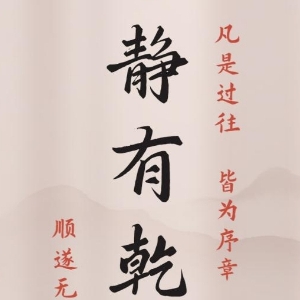 凡是过往 皆为序章
静有乾
顺遂无